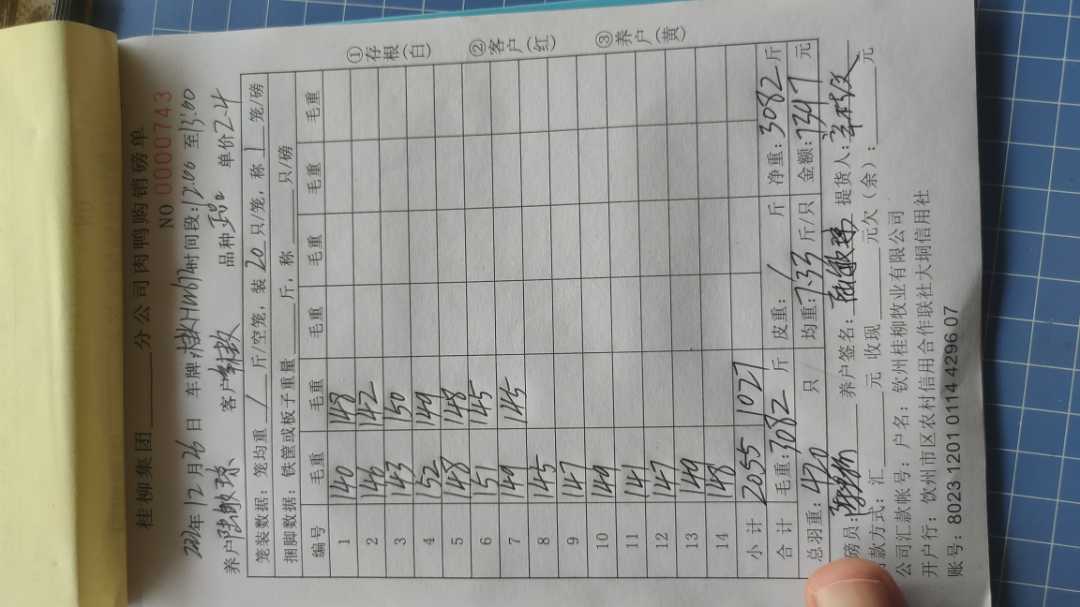 桂柳集团 分公司肉鸭购销磅单
NO 0000743
年12月26日 车牌 时间段:12:00 至13:00
养户陆敏琼 客户 品种 单价2-4
笼装数据: 笼均重 / 斤/空笼, 装20只/笼, 称 1 笼/磅
捆脚数据: 铁筐或板子重量 斤, 称 只/磅
编号 毛重 毛重 毛重 毛重 毛重 毛重
1 140 148
2 146 142
3 143 150
4 152 149
5 148 148
6 151 145
7 149 145
8 145
9 147
10 149
11 141
12 147
13 149
14 148
小计 2055 1027
合计 毛重:3082 斤 皮重: / 斤 净重:3082斤
总羽重:420 只 均重:7.33斤/只 金额:7397元
磅员: 养户签名:陆敏琼 提货人:
款方式: 汇 元 收现 元欠(余): 元
公司汇款帐号: 户名: 钦州桂柳牧业有限公司
开户行: 钦州市区农村信用合作联社大垌信用社
账号: 8023 1201 0114 4296 07
①存根(白) ②客户(红) ③养户(黄)